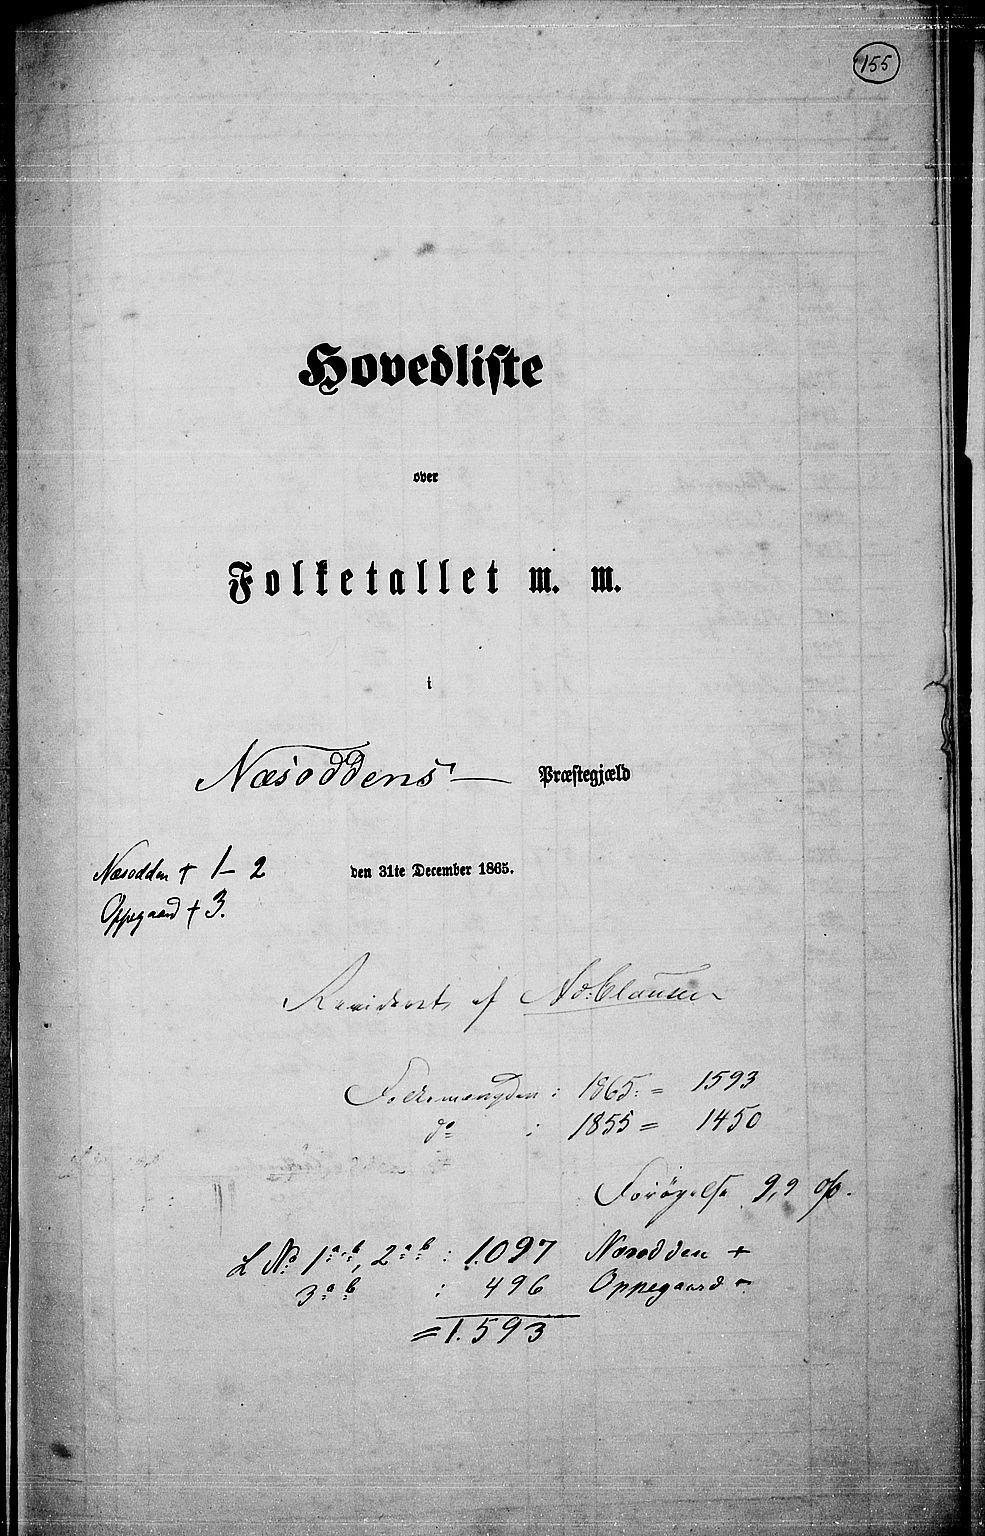 155
Hovedliste
over
Folketallet m. m.
i
Næsoddens Præstegjæld
Næsodden + 1-2
Oppegaard + 3.
den 31te December 1865.
Revideret af Ad. Clausen
Folkemængden : 1865. = 1593
do : 1855 = 1450
Forøgelse 9,9 %.
L No 1 a b, 2 a b : 1.097 Næsodden +
3 a b : 496 Oppegaard
= 1.593